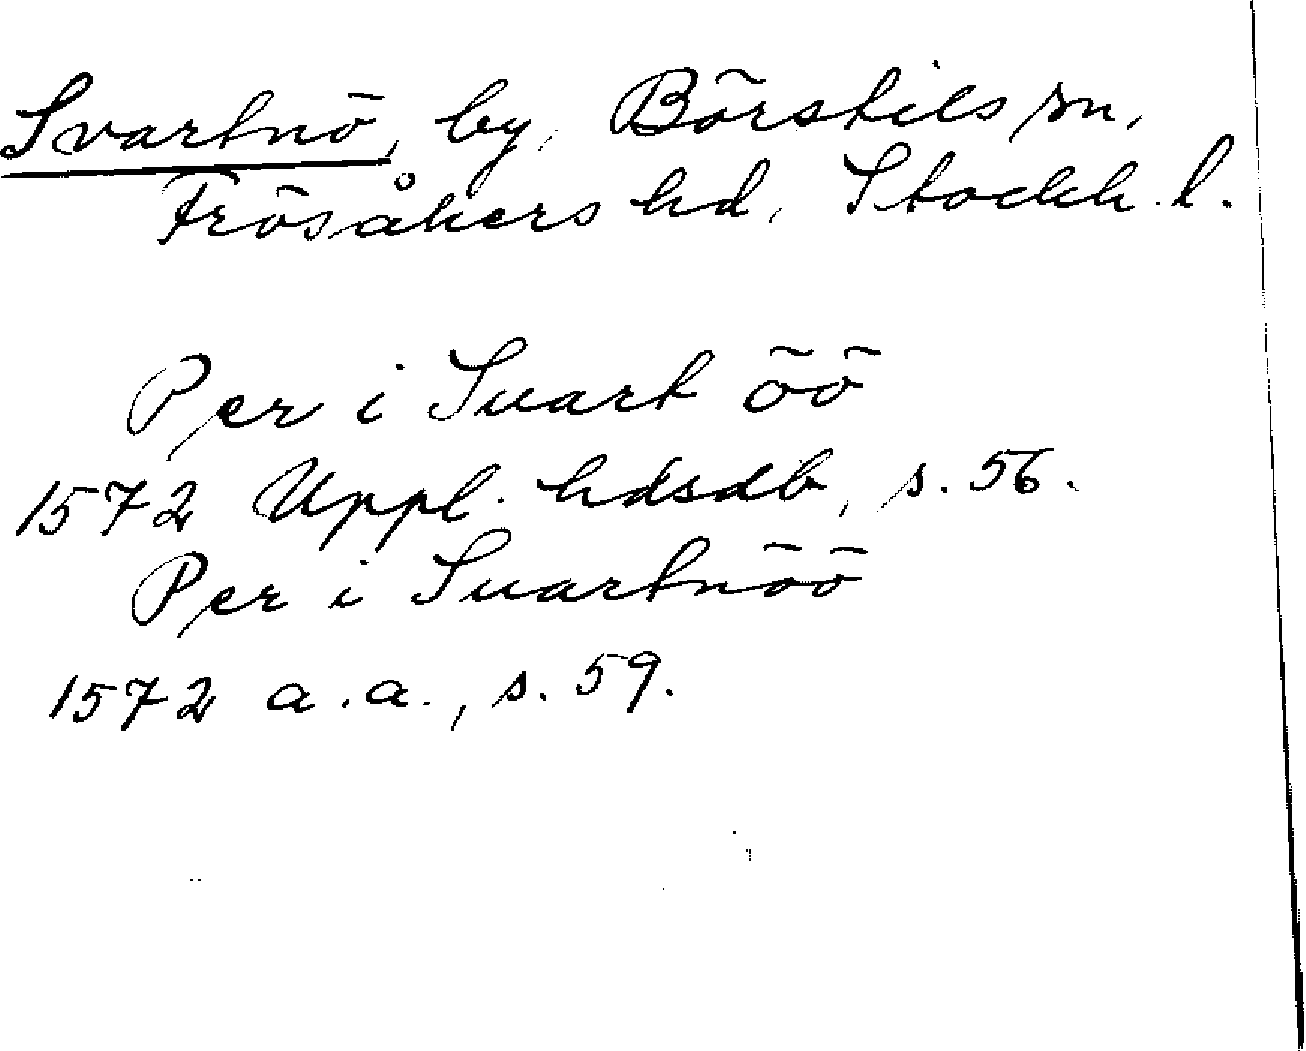 Svartnö, by, Börstils sn,
Frösåkers hd, Stockh. l.
Per i Suart öö
1572 Uppl. hdsdb, s. 56.
Per i Suartnöö
1572 a.a., s. 59.